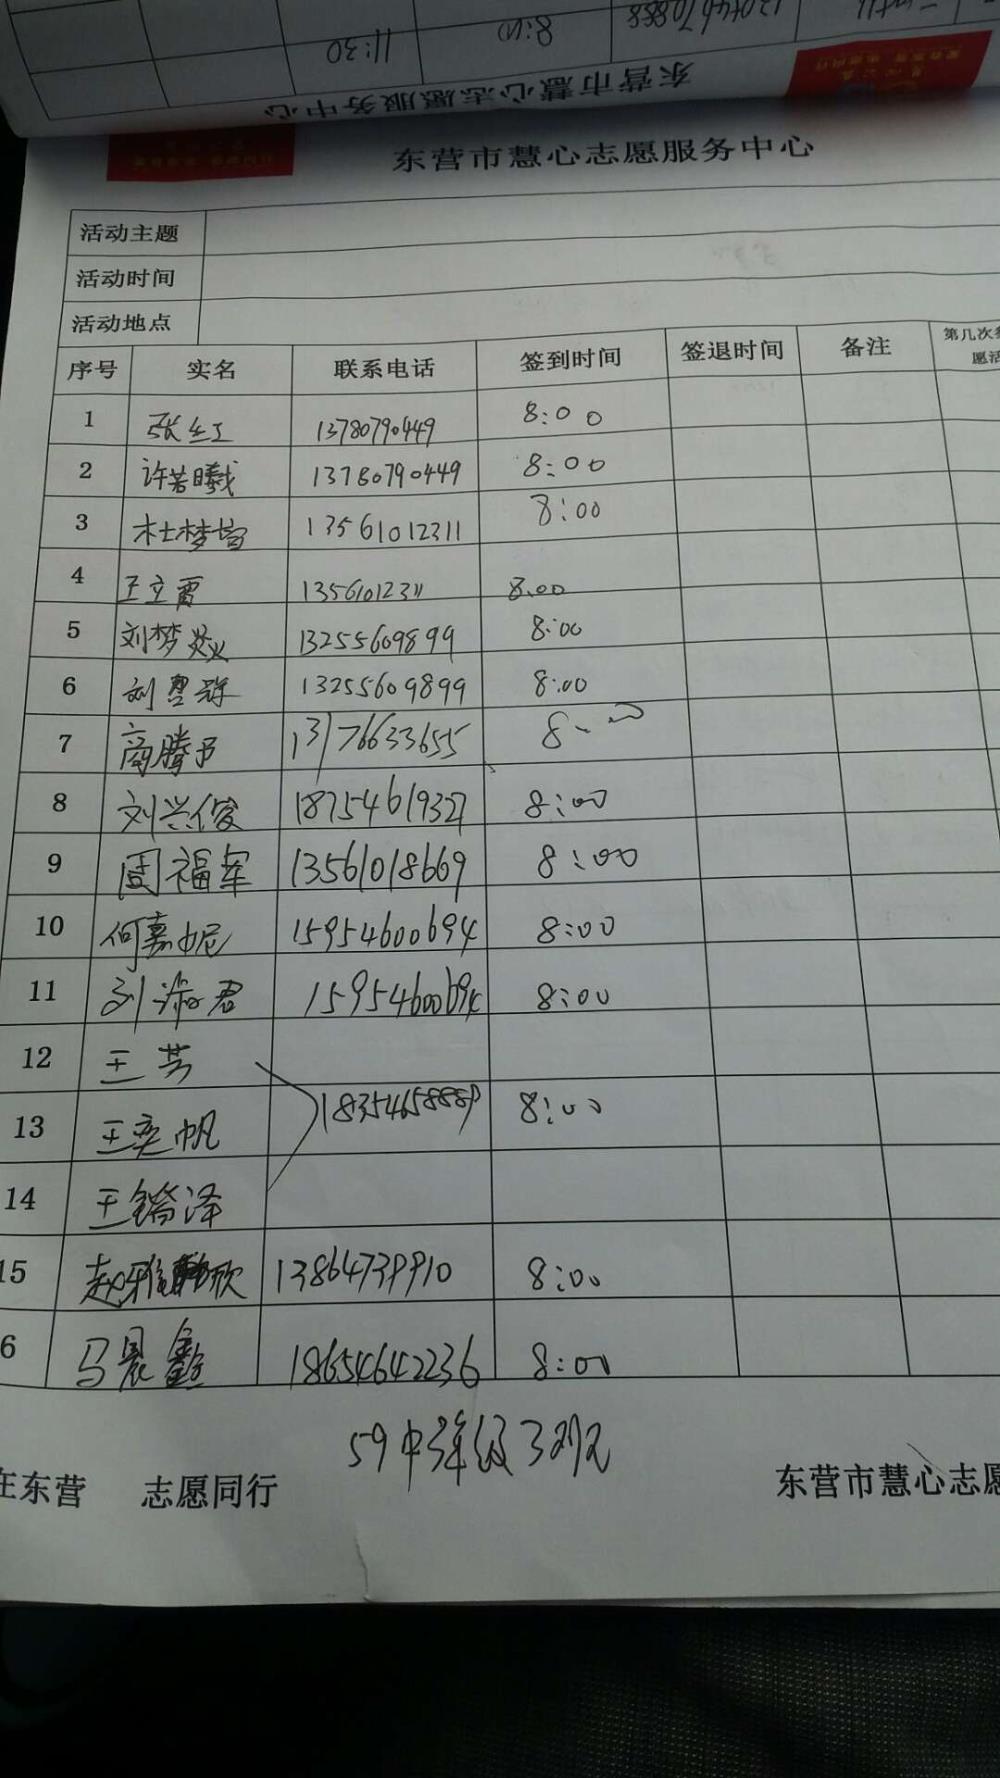 11:30 8:00
东营市慧心志愿服务中心
东营市慧心志愿服务中心
活动主题
活动时间
活动地点
序号 实名 联系电话 签到时间 签退时间 备注 第几次
愿活
1 张红 13780790449 8:00
2 许若曦 13780790449 8:00
3 杜梦 13561012311 8:00
4 王立霄 13561012311 8.00
5 刘梦焱 13255609899 8:00
6 刘 13255609899 8:00
7 商腾 13176633655 8:00
8 刘兴俊 18754619327 8:00
9 周福军 13561018669 8:00
10 何嘉妮 15954600694 8:00
11 刘淑君 15954600694 8:00
12 王芳
13 王奕帆 8:00
14 王锴泽
15 赵雅欣 13864739910 8:00
6 马晨鑫 18654642236 8:00
59中 年级3班
庄东营 志愿同行 东营市慧心志愿